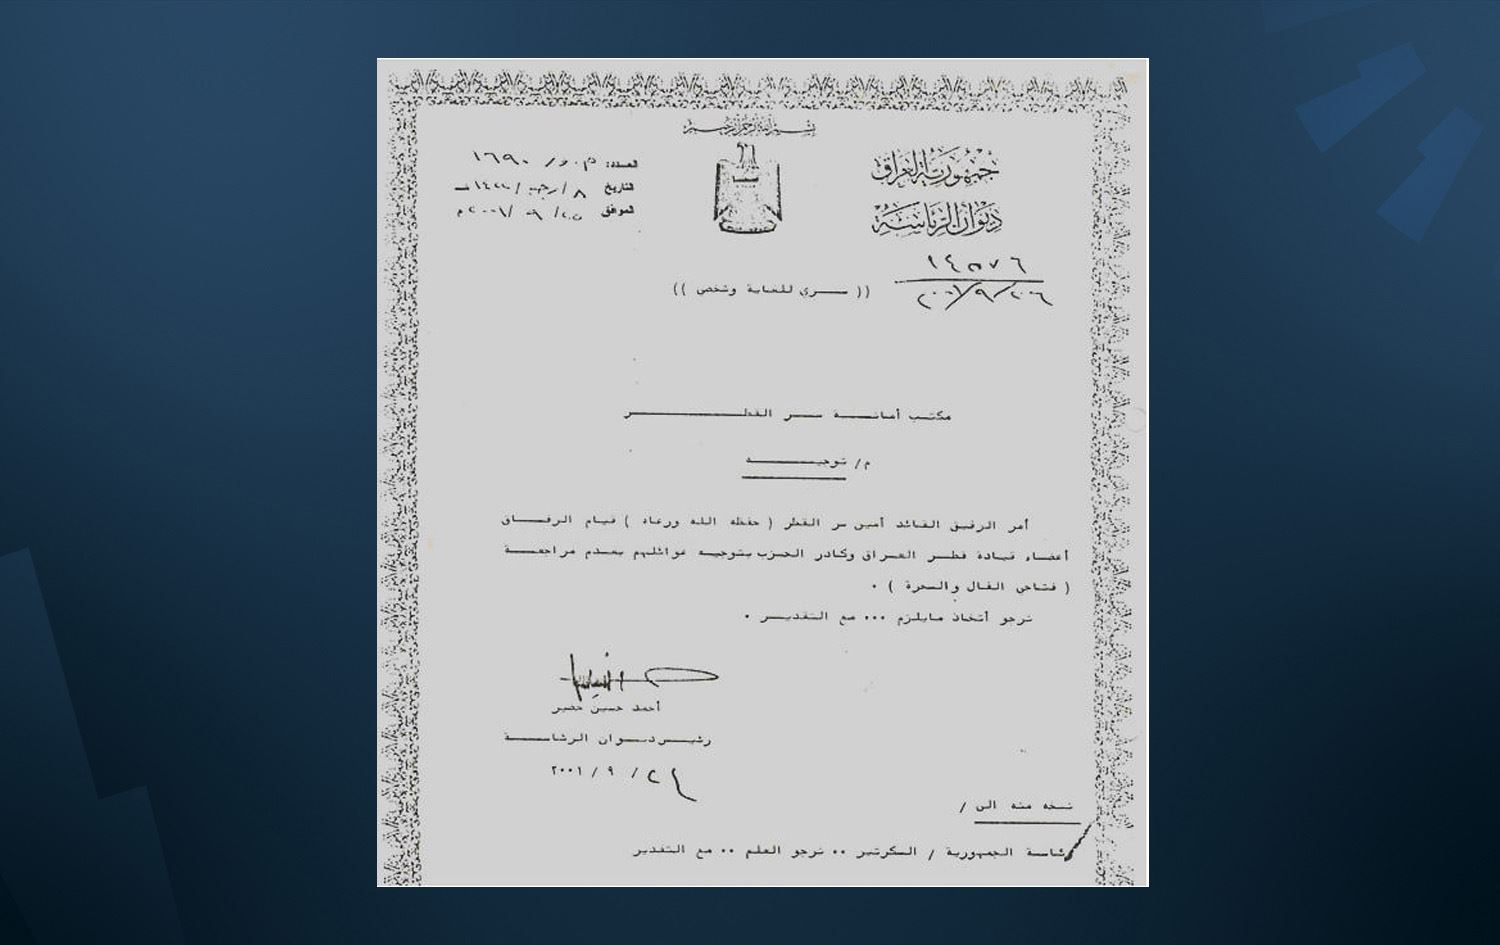 بسم الله الرحمن الرحيم
جمهورية العراق
ديوان الرئاسة
العدد: م.و/ ١٦٩٠
التاريخ ٨/رجب/١٤٢٢هـ
الموافق ٢٥/٩/٢٠٠١م
١٤٥٧٦
٢٠٠١/٩/٢٠٦
(( سري للغاية وشخصي ))
مكتب أمانة سر القطر
م/ توجيه
أمر الرفيق القائد أمين سر القطر ( حفظه الله ورعاه ) قيام الرفاق
أعضاء قيادة قطر العراق وكادر الحزب بتوجيه عوائلهم بعدم مراجعة
( فتاحي الفال والسحرة ) .
نرجو أتخاذ مايلزم ... مع التقدير .
أحمد حسين خضير
رئيس ديوان الرئاسة
٢٤ / ٩ / ٢٠٠١
نسخة منه الى /
رئاسة الجمهورية / السكرتير .. نرجو العلم .. مع التقدير